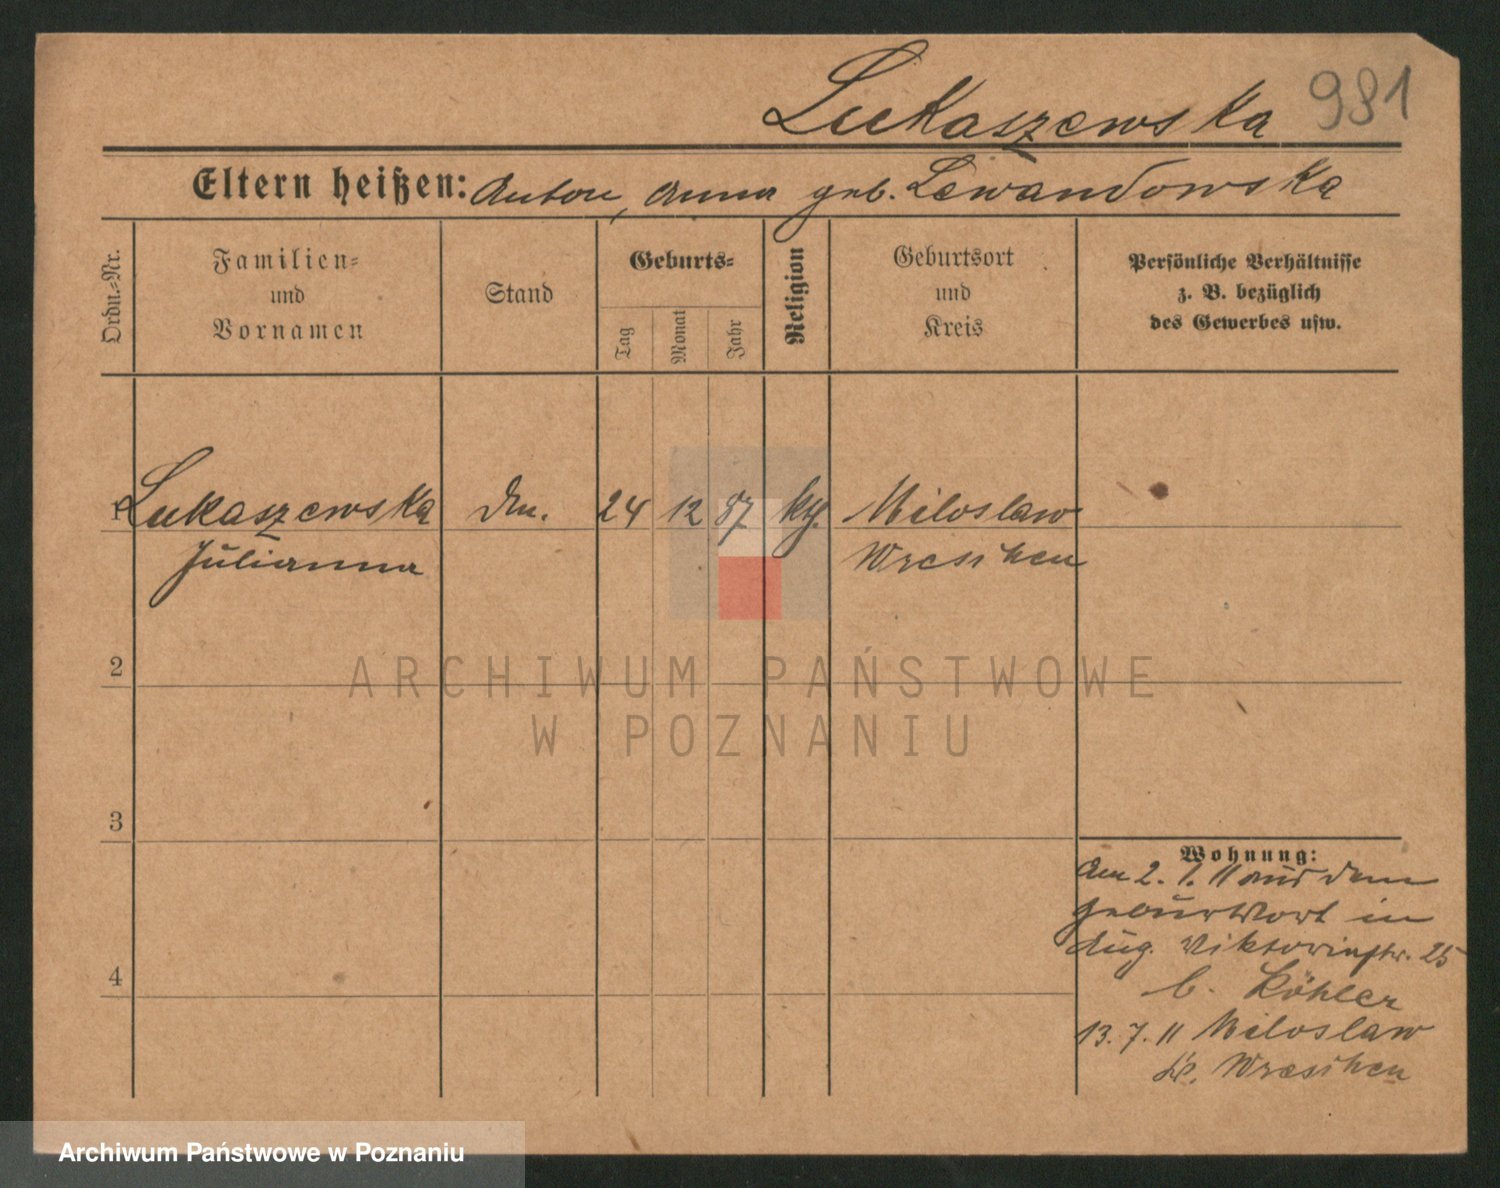 Lukaszewska 981
Eltern heißen: Anton, Anna geb. Lewandowska
Ordn.-Nr.
Familien-
und
Vornamen
Stand
Geburts-
Tag
Monat
Jahr
Religion
Geburtsort
und
Kreis
Persönliche Verhältnisse
z. B. bezüglich
des Gewerbes usw.
1 Lukaszewska 24 12 87 Miloslaw
Julianna Wreschen
2
3
4
Wohnung:
Am 2. 1. 11 aus dem
Geburtsort in
Aug. Viktoriastr. 25
b. Köhler
13. 7. 11 Miloslaw
Kr. Wreschen
ARCHIWUM PAŃSTWOWE
W POZNANIU
Archiwum Państwowe w Poznaniu